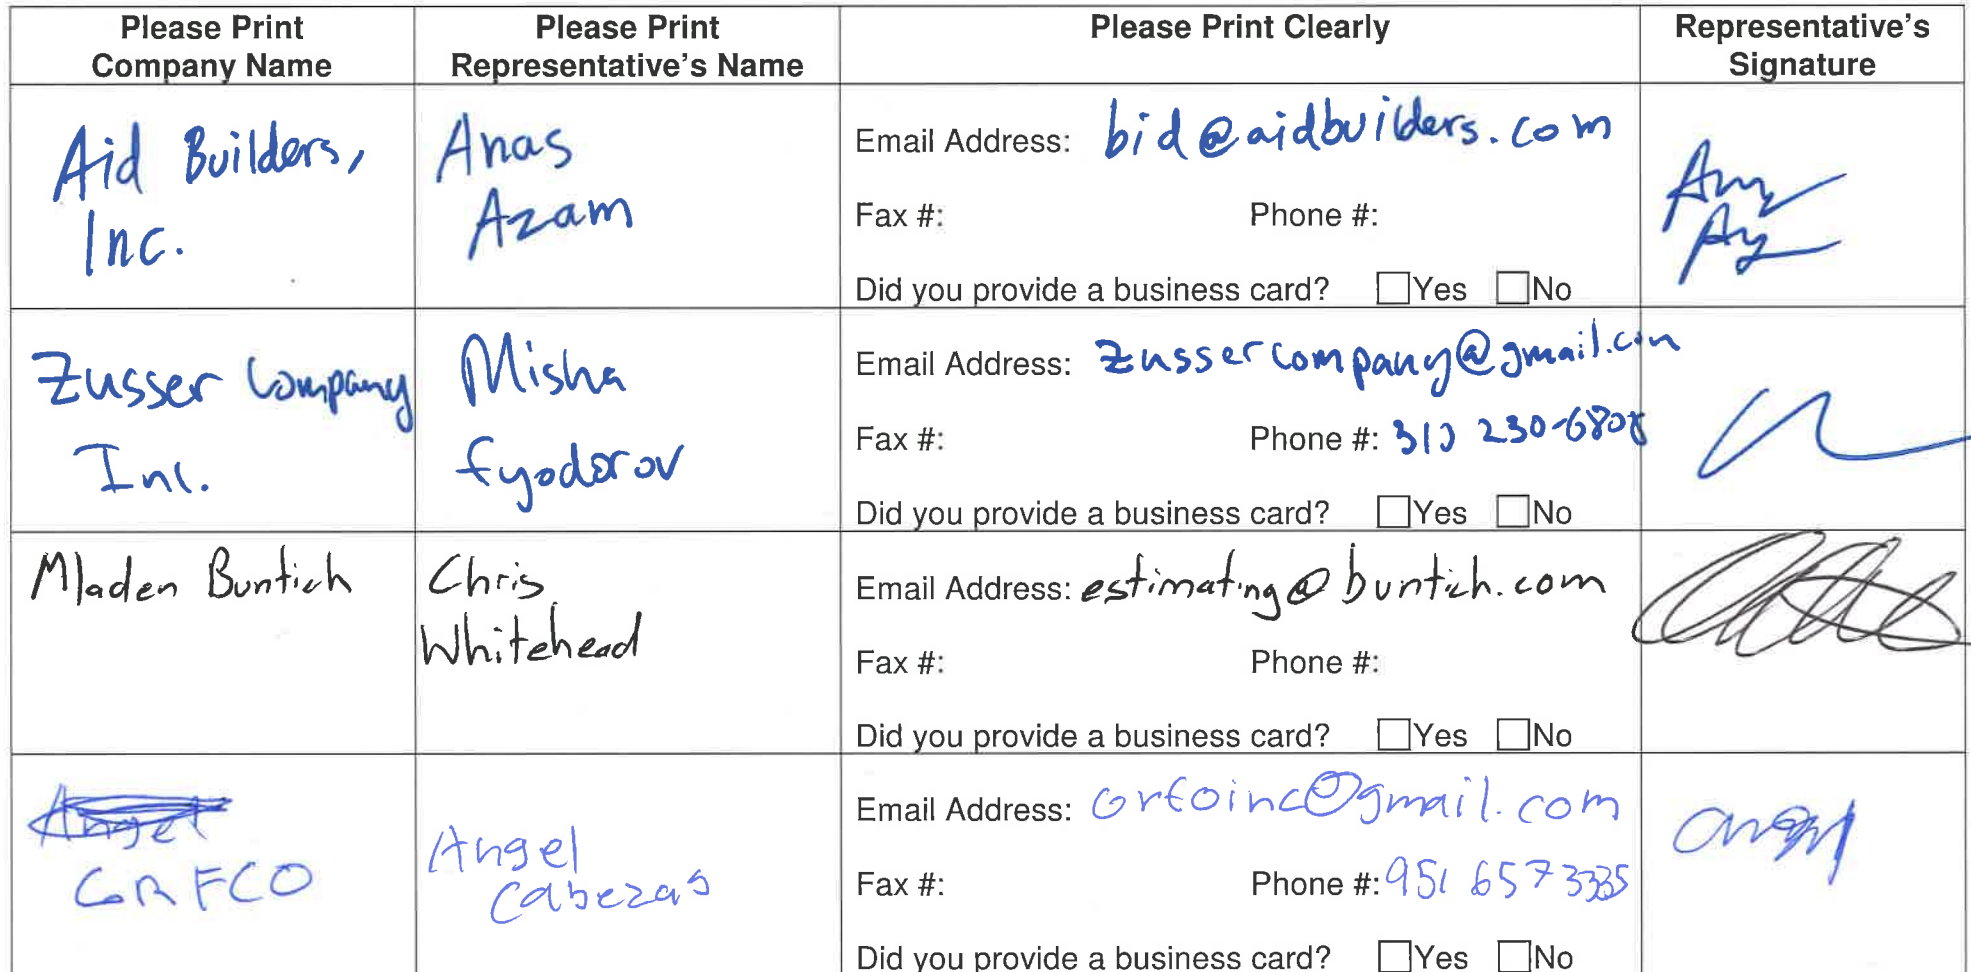 Please Print
Company Name
Please Print
Representative's Name
Please Print Clearly
Representative's
Signature
Aid Builders,
Inc.
Anas
Azam
Email Address: bid@aidbuilders.com
Fax #: Phone #:
Did you provide a business card? Yes No
Zusser Company
Inc.
Misha
Fyodorov
Email Address: zussercompany@gmail.com
Fax #: Phone #: 310 230-6808
Did you provide a business card? Yes No
Mladen Buntich
Chris
Whitehead
Email Address: estimating@buntich.com
Fax #: Phone #:
Did you provide a business card? Yes No
Angel
GRFCO
Angel
Cabezas
Email Address: grfcoinc@gmail.com
Fax #: Phone #: 951 657 3335
Did you provide a business card? Yes No